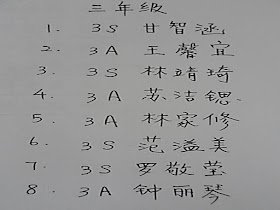 三年级
1. 3S 甘智涵
2. 3A 王馨宜
3. 3S 林靖琦
4. 3A 苏洁锶
5. 3A 林家修
6. 3S 范溢美
7. 3S 罗敬莹
8. 3A 钟丽琴